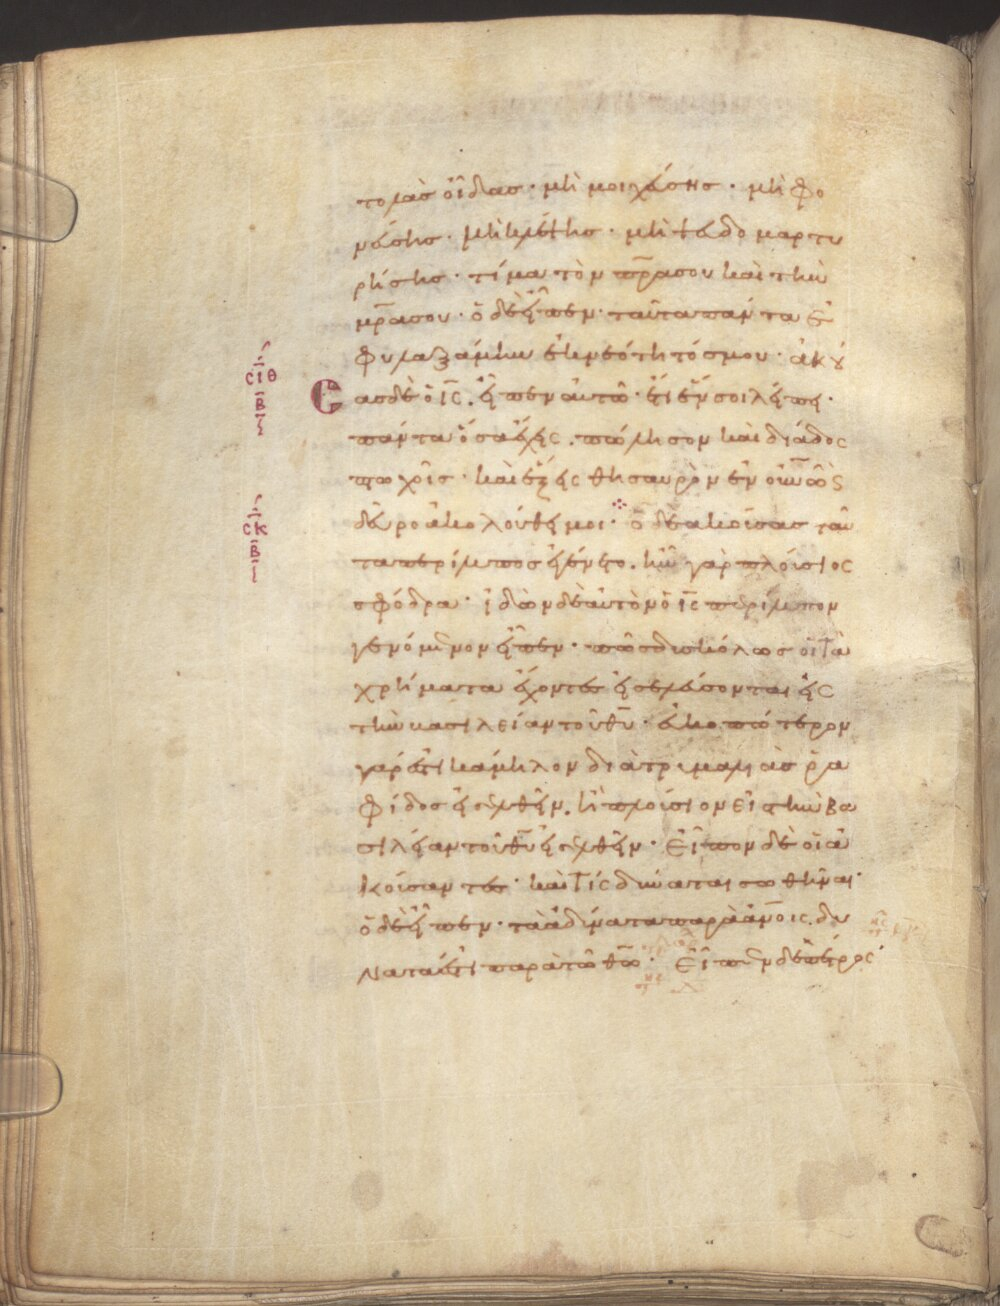 τολὰσ οἶδασ · μὴ μοιχεύσησ · μὴ φο
νεύσησ · μὴ κλέψησ · μὴ ψευδο μαρτυ
ρήσησ · τίμα τὸν πρ̅α σου καὶ τὴν
μρ̅α σου · ὁ δὲ εἶπεν · ταῦτα πάντα ἐ
φυλαξάμην ἐκ νεότητόσ μου · ἀκού
σιθ
β
Ε ασ δὲ ὁ ις̅ . εἶπεν αὐτῶ · ἔτι ἕν σοι λείπει ·
πάντα ὅσα ἔχεις . πώλησον καὶ διάδος
πτωχοῖς · καὶ ἕξεις θησαυρὸν ἐν οὐνῶ
σκ
β
δεῦρο ἀκολούθει μοι · ὁ δὲ ἀκούσας ταῦ
τα περίλυποσ ἐγένετο . ἦν γὰρ πλούσιος
σφόδρα · ἰδὼν δὲ αὐτὸν ὁ ις̅ περίλυπον
γενόμενον εἶπεν · πῶσ δυσκόλωσ οἱ τὰ
χρήματα ἔχοντεσ εἰσελεύσονται εἰς
τὴν βασιλείαν τοῦ θυ̅ · εὐκοπώτερον
γάρ ἐστι κάμηλον διὰ τρυμαλιᾶσ ῥα
φίδοσ εἰσελθεῖν . ἢ πλούσιον εἰσ τὴν βα
σιλείαν τοῦ θυ̅ εἰσελθεῖν · εἶπον δὲ οἱ ἀ
κούσαντεσ · καὶ τίς δύναται σωθῆναι ·
ὁ δὲ εἶπεν · τὰ ἀδύνατα παρὰ ἀνοις̅ . δυ
νατά ἐστι παρὰ τῶ θω̅ · εἶπεν δὲ πέτρος